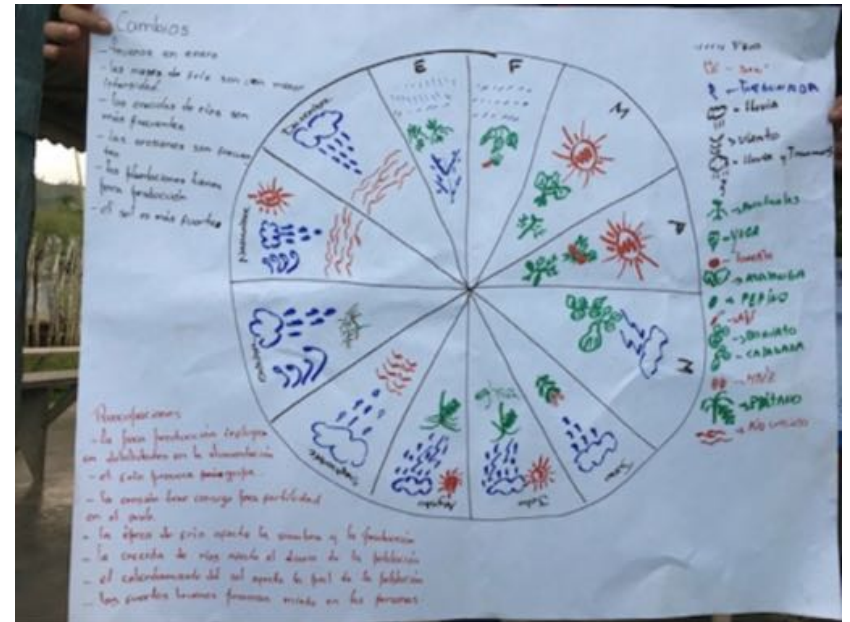 Cambios
- truenos en enero
- los meses de frío son con menor
intensidad
- las crecidas de ríos son
más frecuentes
- las erosiones son frecuen
tes
- las plantaciones tienen
poca producción
- el sol es más fuerte
E
F
M
A
M
Junio
Julio
Agosto
Septiembre
Octubre
Noviembre
Diciembre
FRIO
- SOL
- TURBONADA
- lluvia
viento
- lluvia y Truenos
YUCA
tomate
MALANGA
PEPINO
AJÍ
BONIATO
CALABAZA
- MAIZ
PLÁTANO
Río crecido
Preocupaciones
- la poca producción implica
en debilidades en la alimentación
- el frío provoca gripe
- la erosión trae consigo poca fertilidad
en el suelo
- la época de frío afecta la siembra y la producción
- la crecida de ríos afecta el de la población
- el calentamiento del sol afecta la piel de la población
- los fuertes truenos provocan miedo en las personas